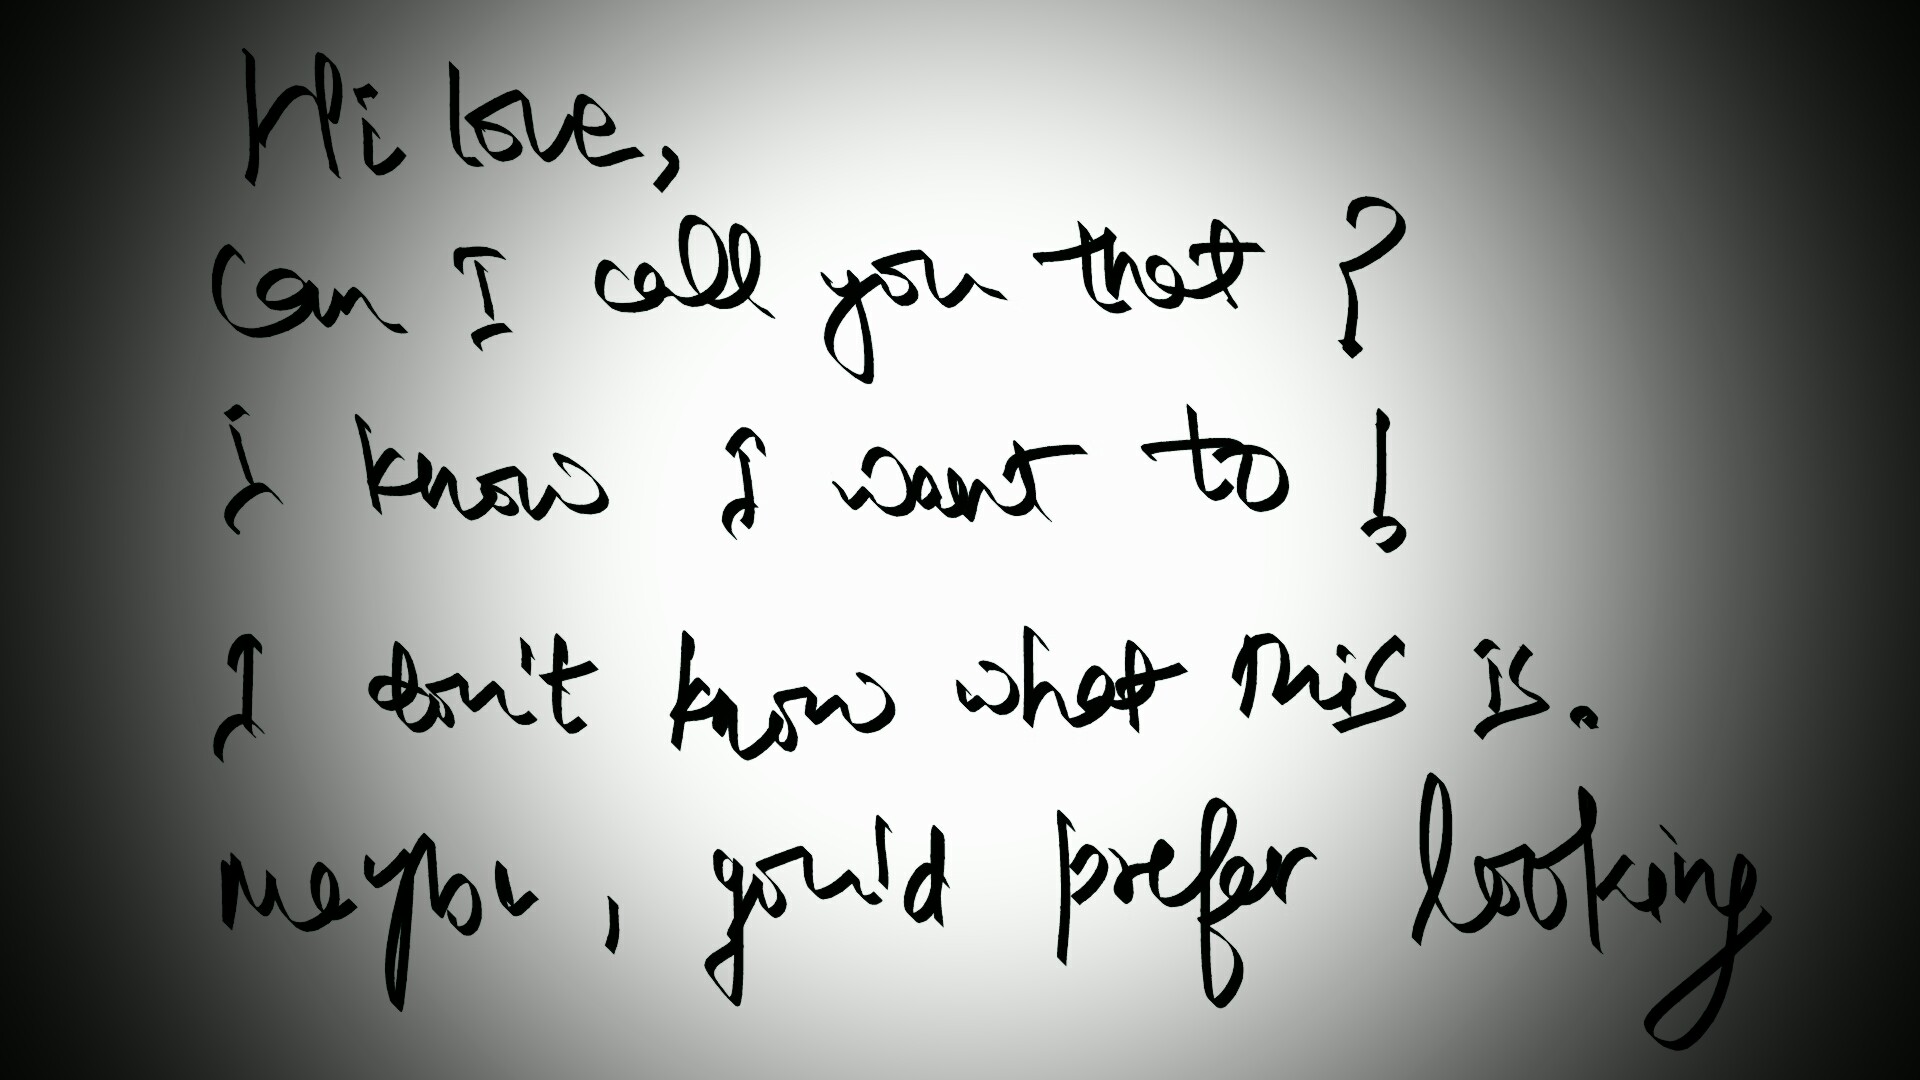 Hi love,
Can I call you that?
I know I want to!
I don't know what this is.
maybe, you'd prefer looking